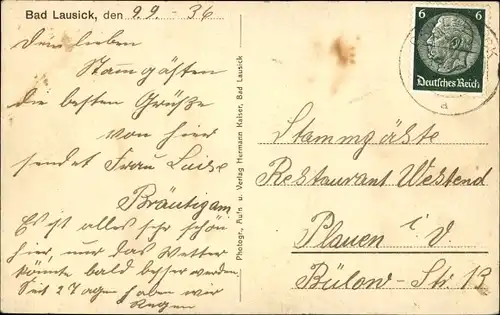 Bad Lausick, den 9.9.-36
Den lieben
Stammgästen
die besten Grüße
von hier
sendet Frau Luise
Bräutigam
Es ist alles sehr schön
hier, nur das Wetter
könnte bald besser werden
Seit 2 Tagen haben wir
Regen
Photogr., Aufn. u. Verlag Hermann Kaiser, Bad Lausick
6 6
Deutsches Reich
Stammgäste
Restaurant Westend
Plauen i V.
Bülow-Str. 13